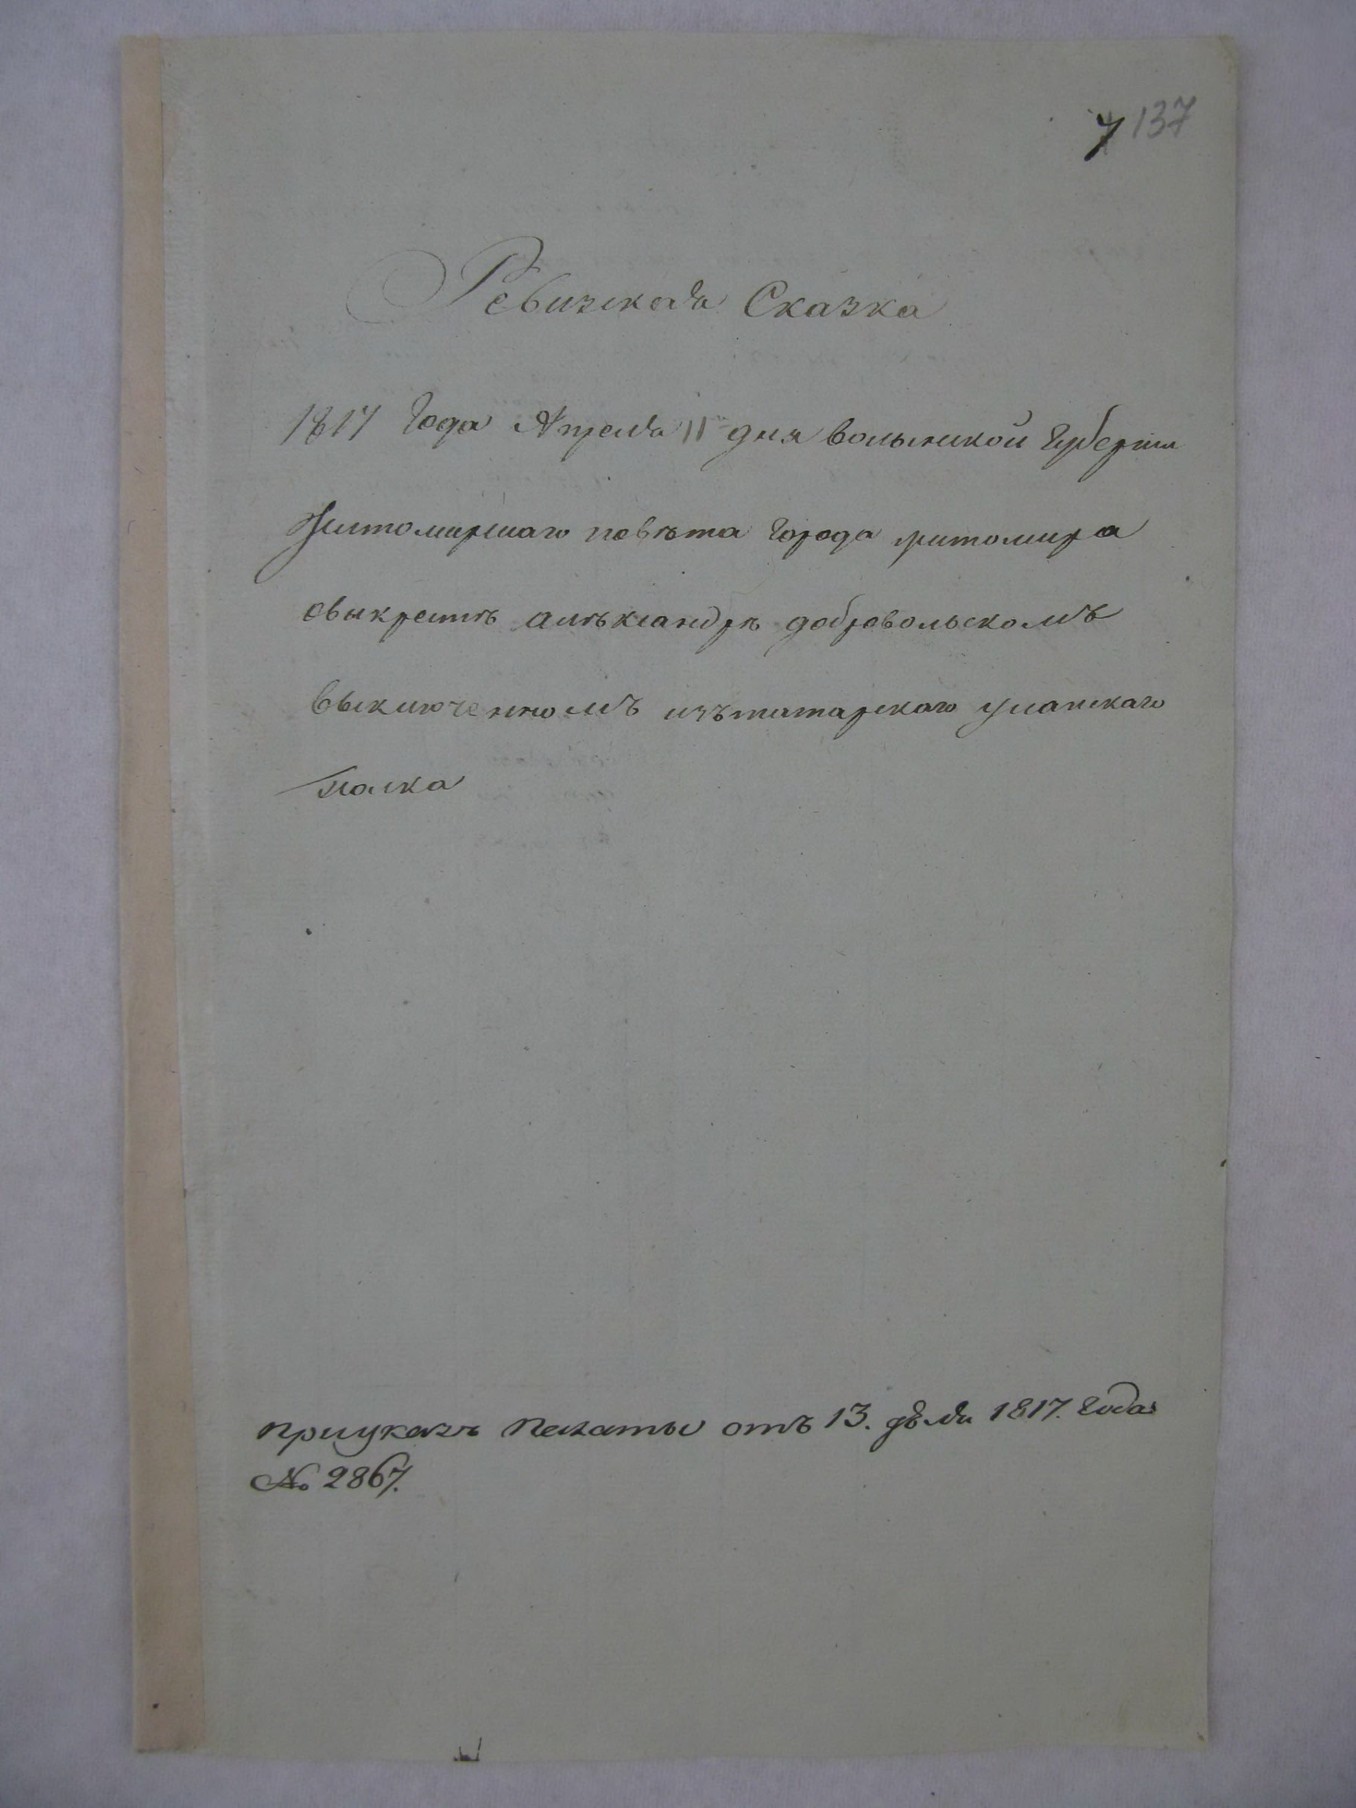 7 137
Ревизская Сказка
1817 Года Апреля 11 дня волынской Губернии
Житомирскаго повѣта города житомира
овыкрестѣ алѣксандрѣ добровольскомъ
выключенномъ изътатарскаго уланскаго
полка
приуказѣ Палаты отъ 13. 1817. Года
№ 2867.